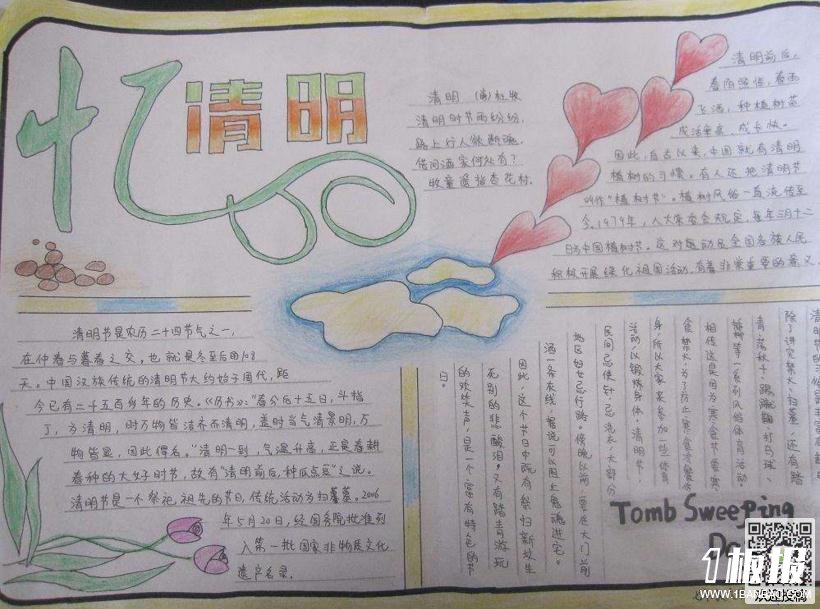 忆清明
清明 (唐)杜牧
清明时节雨纷纷,
路上行人欲断魂。
借问酒家何处有?
牧童遥指杏花村。
清明前后,
春阳照临,春雨
飞洒,种植树苗
成活率高,成长快。
因此,自古以来,中国就有清明
植树的习惯。有人还把清明节
叫作"植树节"。植树风俗一直流传至
今。1979年,人大常委会规定,每年三月十二
日为中国植树节。这对动员全国各族人民
积极开展绿化祖国活动,有着非常重要的意义
清明节是农历二十四节气之一,
在仲春与暮春之交,也就是冬至后的108
天。中国汉族传统的清明节大约始于周代,距
今已有二千五百多年的历史。《历书》:"春分后十五日,斗指
丁,为清明,时万物皆洁齐而清明,盖时当气清景明,万
物皆显,因此得名。"清明一到,气温升高,正是春耕
春种的大好时节,故有"清明前后,种瓜点豆"之说。
清明节是一个祭祀祖先的节日,传统活动为扫墓。2006
年5月20日,经国务院批准列
入第一批国家非物质文化
遗产名录。
除了讲究禁火、扫墓,还有踏
青、荡秋千、踢蹴鞠、打马球、
插柳等一系列风俗体育活动
相传这是因为寒食节要寒
食禁火,为了防止寒食冷餐伤
身,所以大家来参加一些体育
活动,以锻炼身体。清明节,
民间忌使针,忌洗衣,大部分
地区妇女忌行路。傍晚以前,要在大门前
洒一条灰线,据说可以阻止鬼魂进宅。
因此,这个节日中既有祭扫新坟生
死别的悲酸泪,又有踏青游玩
的欢笑声,是一个富有特色的节
日。
Tomb Sweeping
Da
1板报
WWW.1BANBAO.COM
欢迎投稿